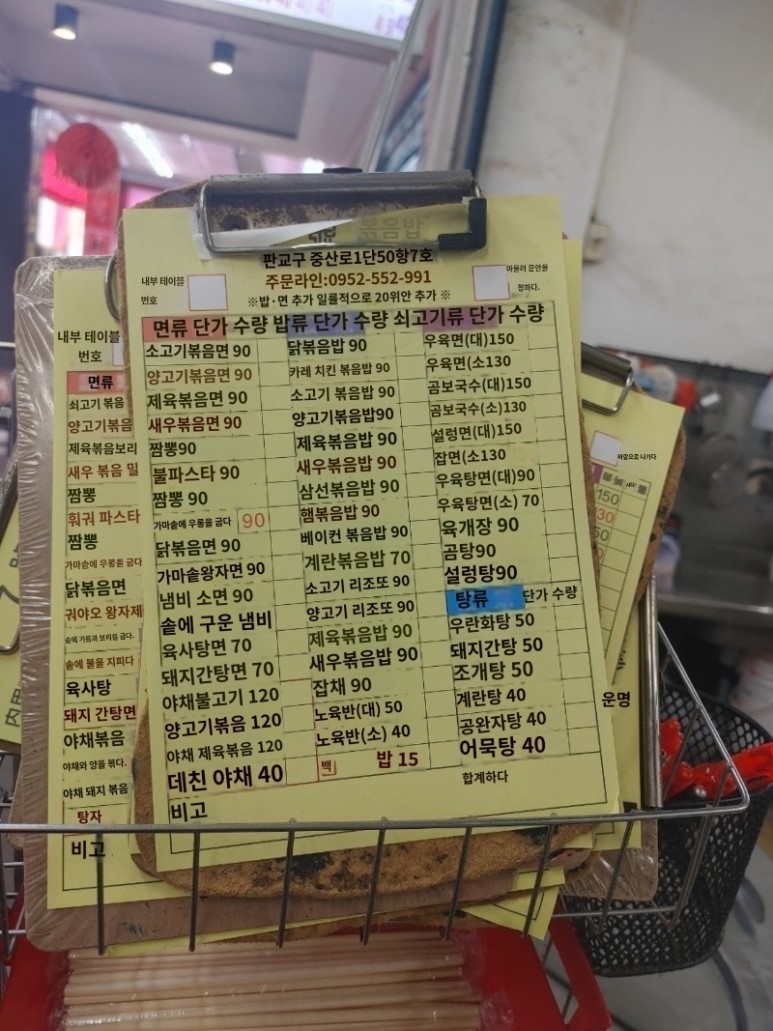 볶음밥
판교구 중산로1단50항7호
주문라인:0952-552-991
※밥·면 추가 일률적으로 20위안 추가 ※
내부 테이블
번호
아울러 문안을
청하다.
면류 단가 수량 밥류 단가 수량 쇠고기류 단가 수량
소고기볶음면 90
양고기볶음면 90
제육볶음면 90
새우볶음면 90
짬뽕90
불파스타 90
짬뽕 90
가마솥에 우롱을 굽다 90
닭볶음면 90
가마솥왕자면 90
냄비 소면 90
솥에 구운 냄비
육사탕면 70
돼지간탕면 70
야채불고기 120
양고기볶음 120
야채 제육볶음 120
데친 야채 40
비고
닭볶음밥 90
카레 치킨 볶음밥 90
소고기 볶음밥 90
양고기볶음밥90
제육볶음밥 90
새우볶음밥 90
삼선볶음밥 90
햄볶음밥 90
베이컨 볶음밥 90
계란볶음밥 70
소고기 리조또 90
양고기 리조또 90
제육볶음밥 90
새우볶음밥 90
잡채 90
노육반(대) 50
노육반(소) 40
백 밥 15
우육면(대)150
우육면(소130
곰보국수(대)150
곰보국수(소)130
설렁면(대)150
잡면(소130
우육탕면(대)90
우육탕면(소) 70
육개장 90
곰탕90
설렁탕90
탕류 단가 수량
우란화탕 50
돼지간탕 50
조개탕 50
계란탕 40
공완자탕 40
어묵탕 40
합계하다
내부 테이블
번호
면류
쇠고기 볶음
양고기볶음
제육볶음보리
새우 볶음 밀
짬뽕
훠궈 파스타
짬뽕
가마솥에 우롱을 굽다
닭볶음면
궈야오 왕자제
솥에 기름과 보리를 굽다.
솥에 불을 지피다
육사탕
돼지 간탕면
야채볶음
야채와 양을 볶다.
야채 돼지 볶음
탕자
비고
바깥으로 나가다
150
130
50
운명